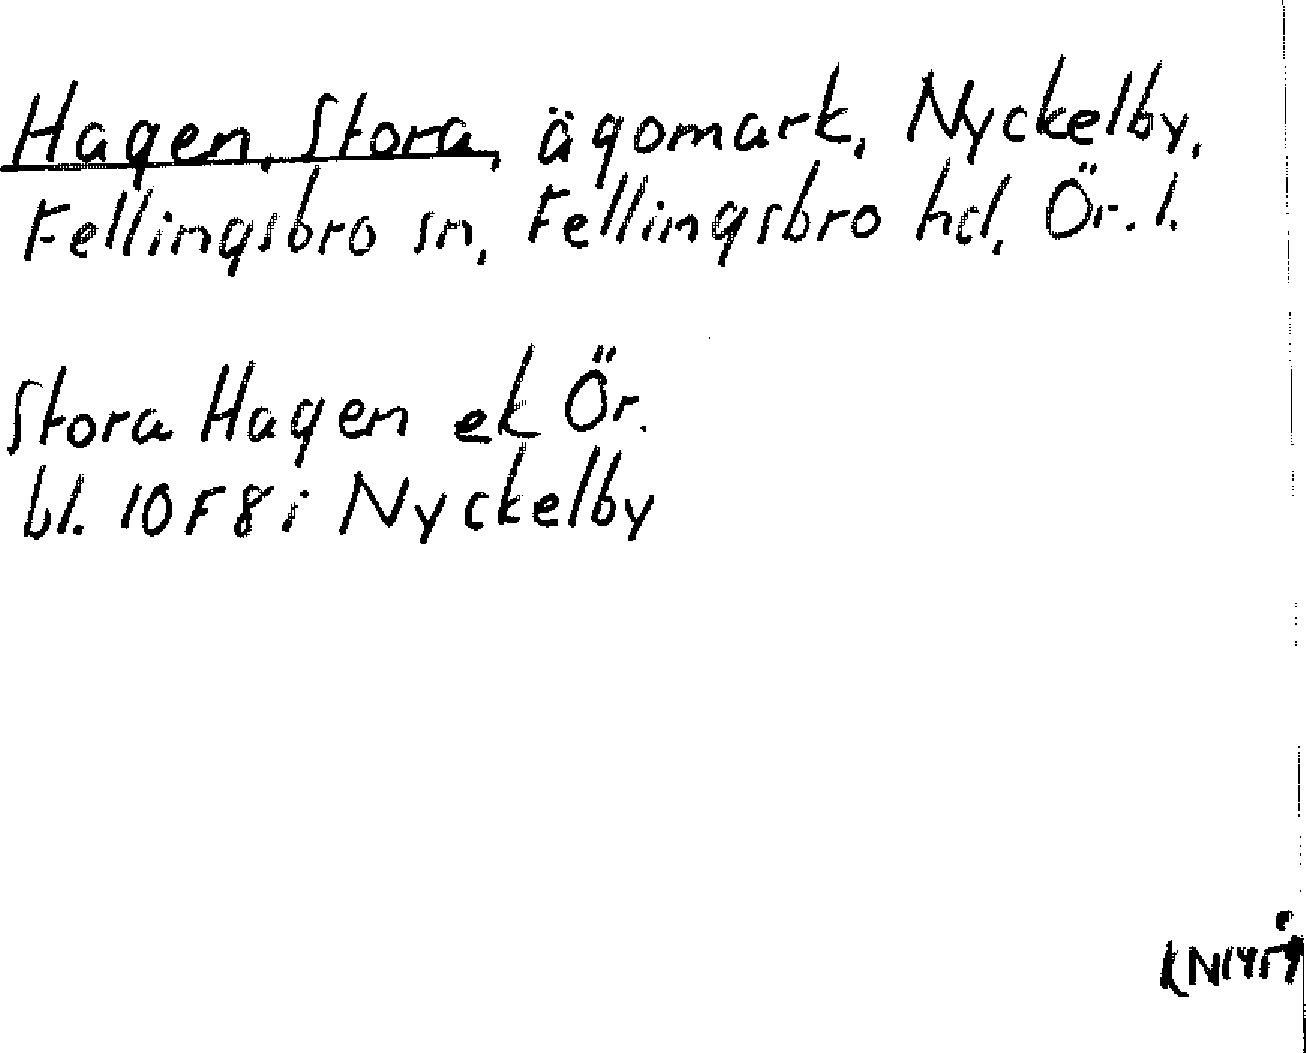 Hagen, Stora, ägomark, Nyckelby,
Fellingsbro sn, Fellingsbro hd, Ör. l.
Stora Hagen ek Ör.
bl. 10F8i Nyckelby